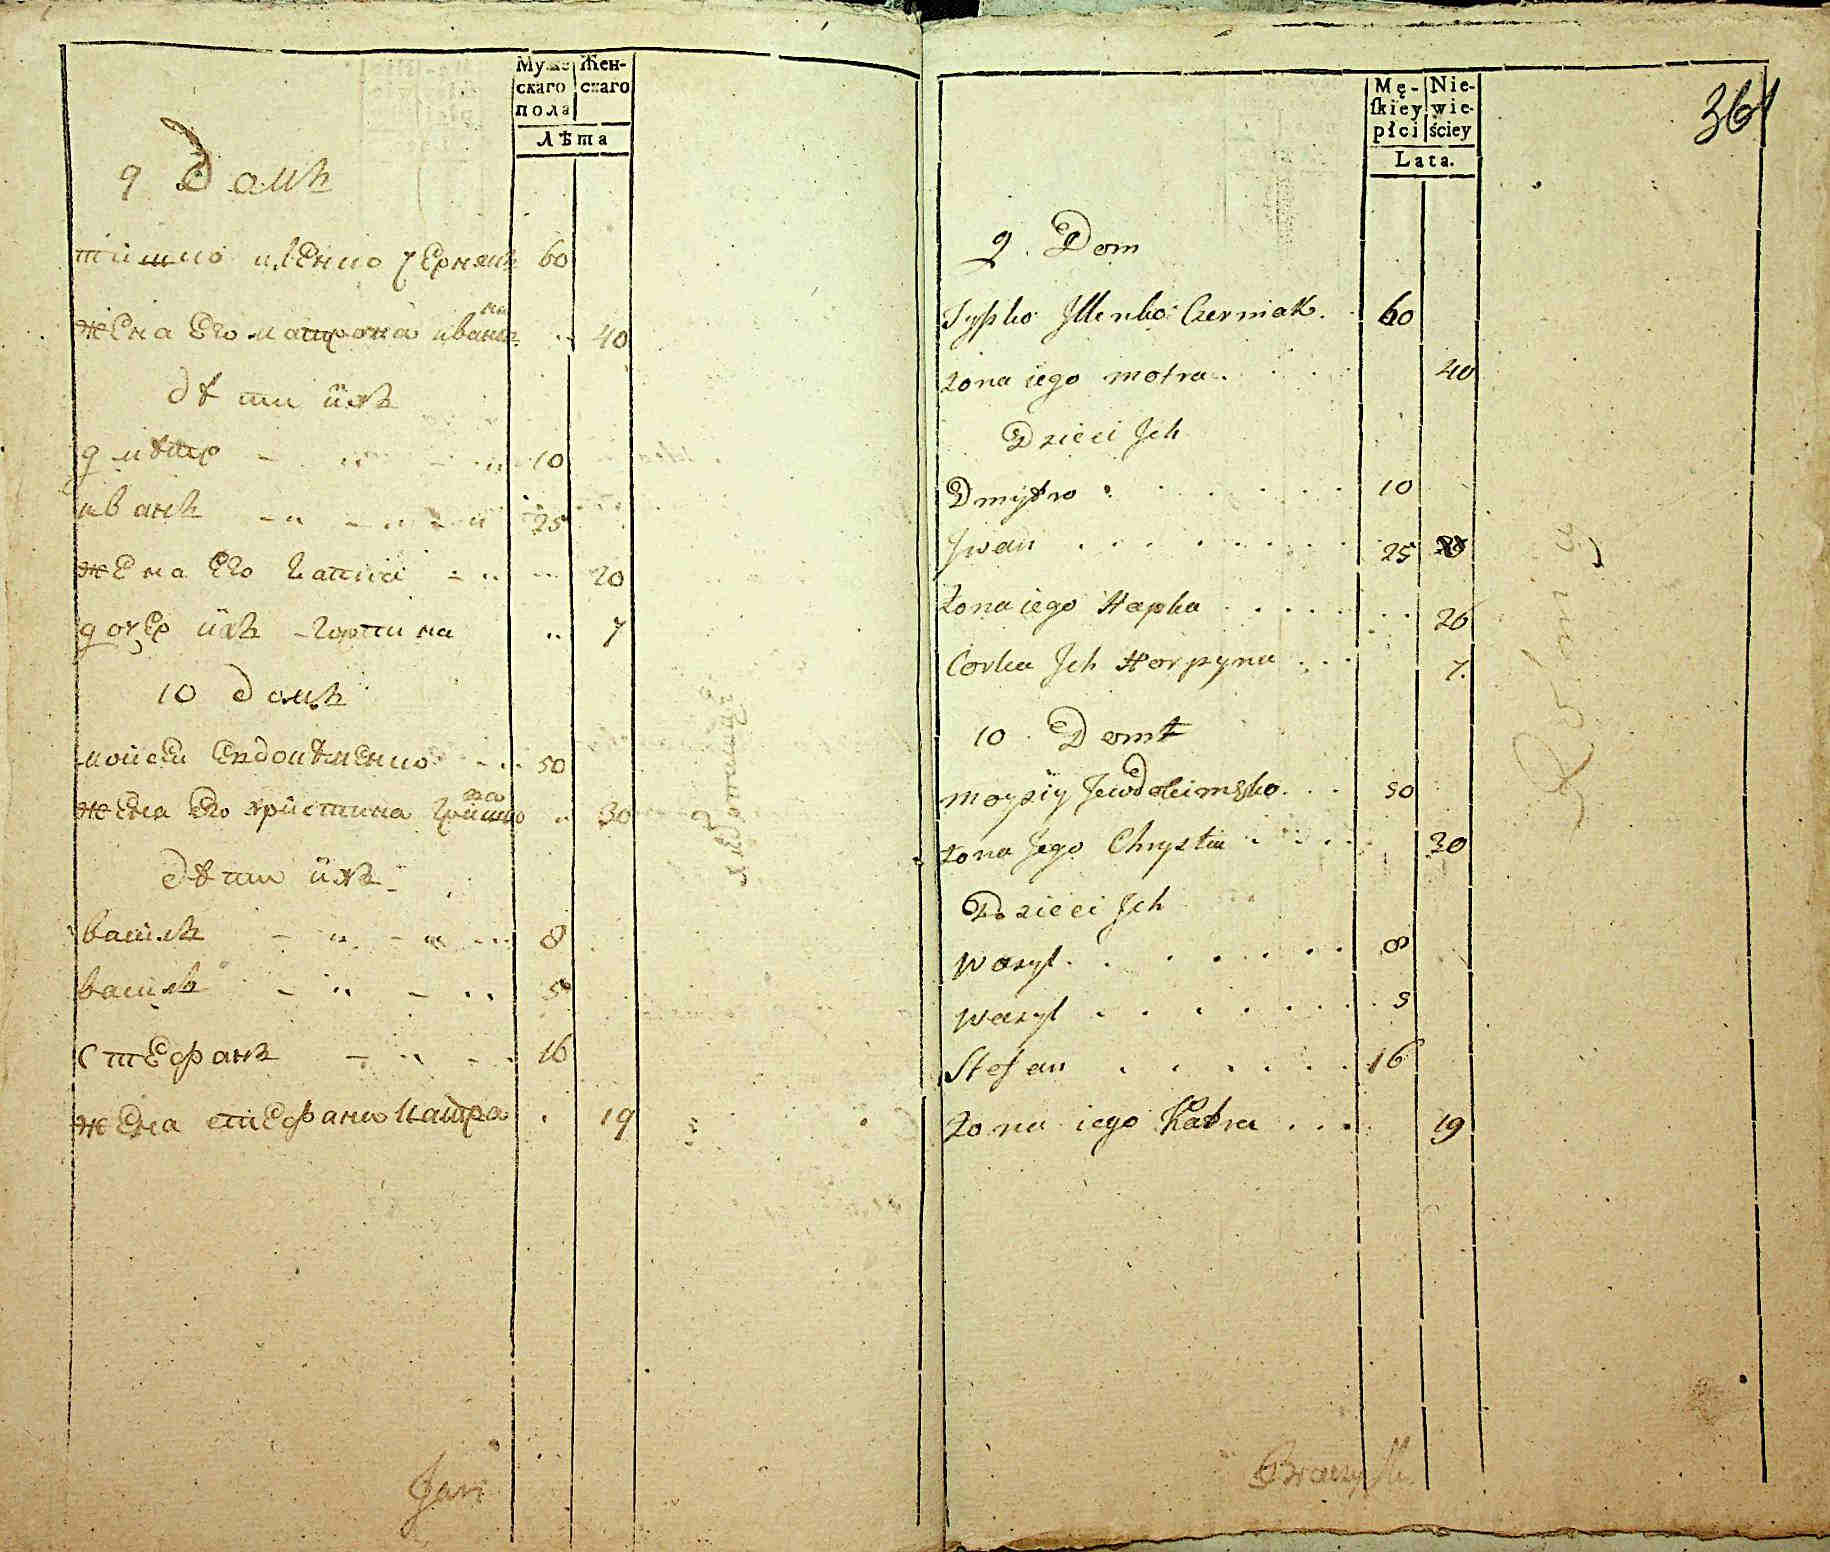 Муже скаго пола
Женскаго
Лѣта
9 Домъ
жена его матрона иванов на 40
дѣти ихъ
дмѣтр 10
иванъ 25
жена его гапка 20
дочер ихъ горпина 7
10 домъ
мойсеи евдокѣменко 50
жена его христина 30
дѣти ихъ
васил 8
васил 5
стефанъ 16
жена стефанова катра 19
Jan
Mę-
ſkiey
płci
Nie-
wie-
ściey
Lata.
361
9. Dom
Jllenko Czerniak. 60
żona iego motra 40
Dzieci Jch
Dmytro 10
Jwan 25
żona iego Hapka 26
Corka Jch Horpyna 7.
10. Dom
Moyziy 50
żona Jego Chrystia 30
Dzieci Jch
Wazyl 8
Wazyl 5
Stefan 16
żona iego Katra 19